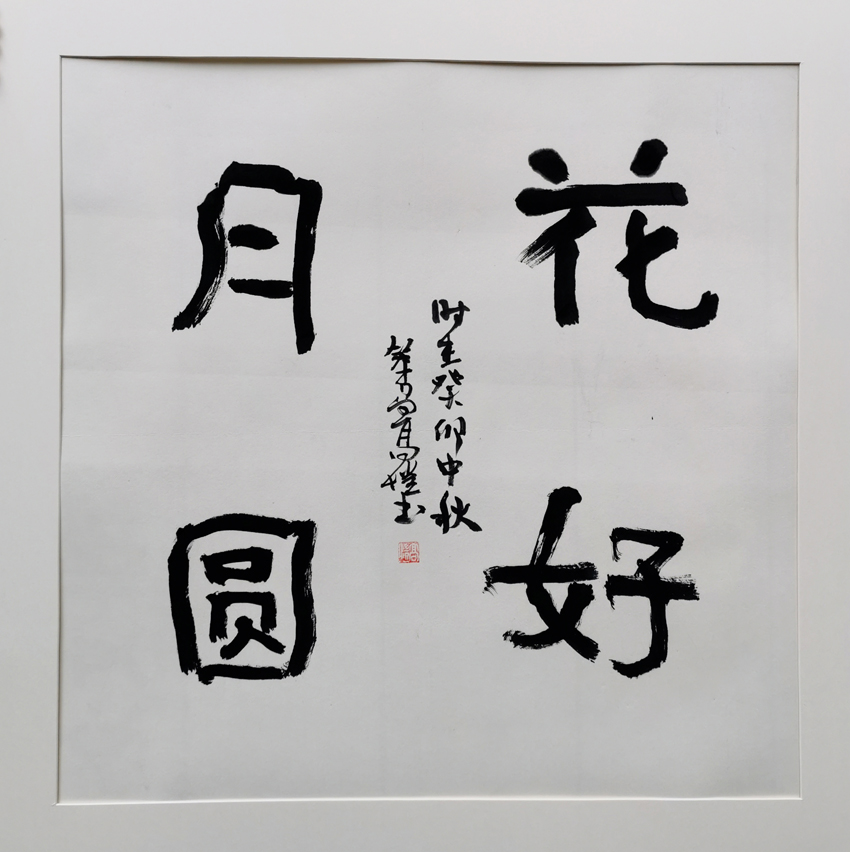 花好
月圆
时在癸卯中秋